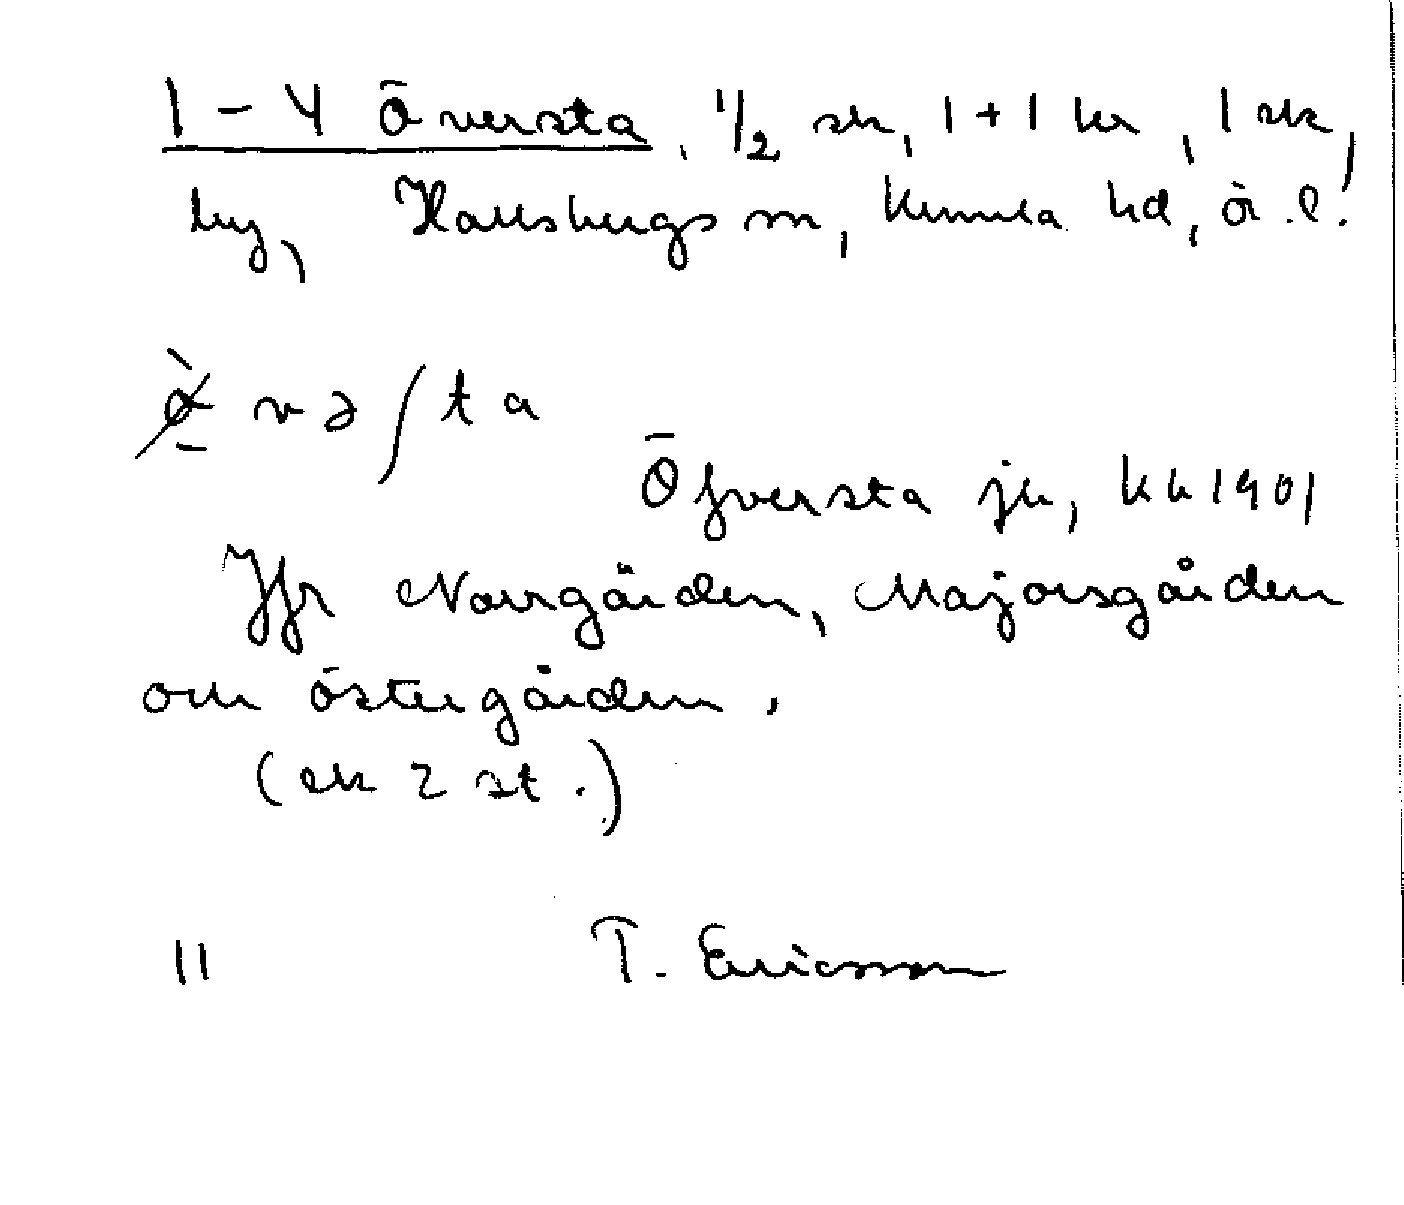 1 – 4 Översta, 1/2 sk, 1+1 kr, 1 sk,
by, Hallsbergs sn, Kumla hd, ör. l.
və∫ta
Öfversta jb, kb 1901
Jfr Norrgården, Majorsgården
och Östergården,
(ek 2 st.)
11 T. Ericsson